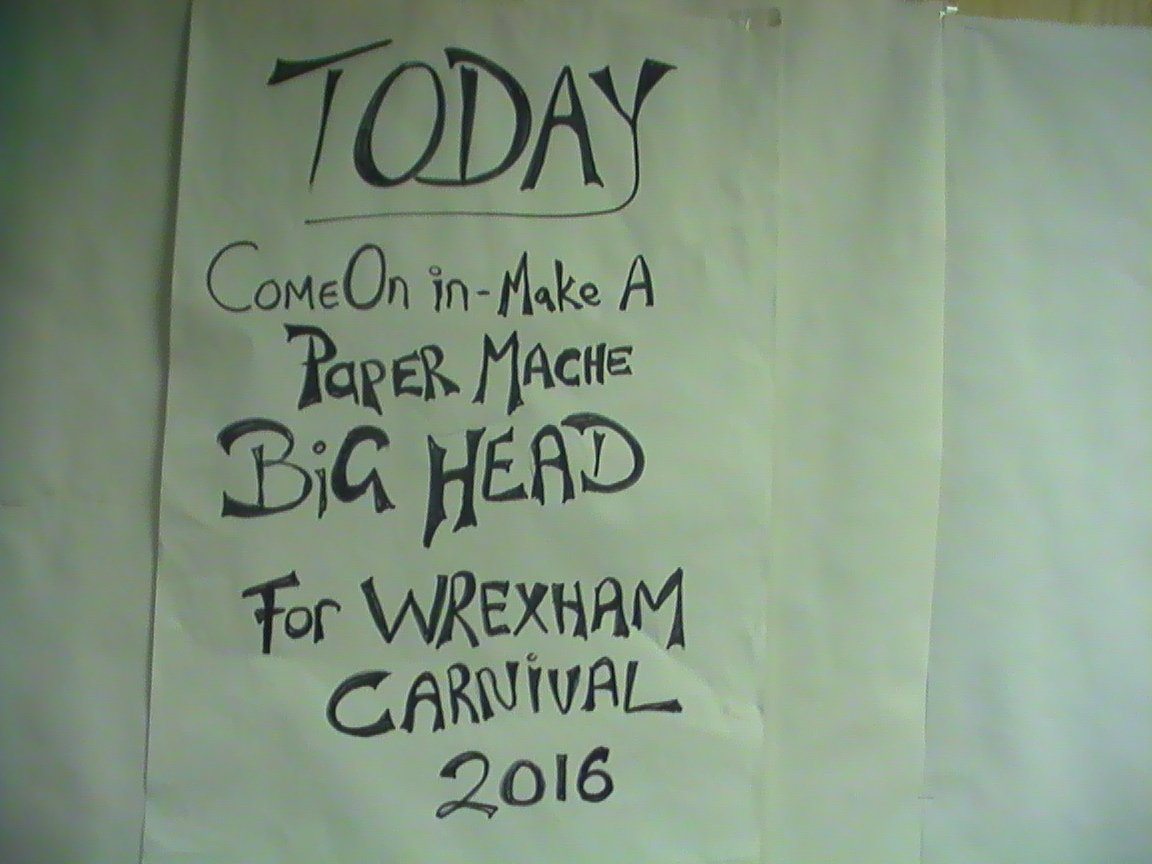 TODAY
COMEOn in-Make A
PaPER MACHE
BiG HEAD
For WREXHAM
CARNiVAL
2016